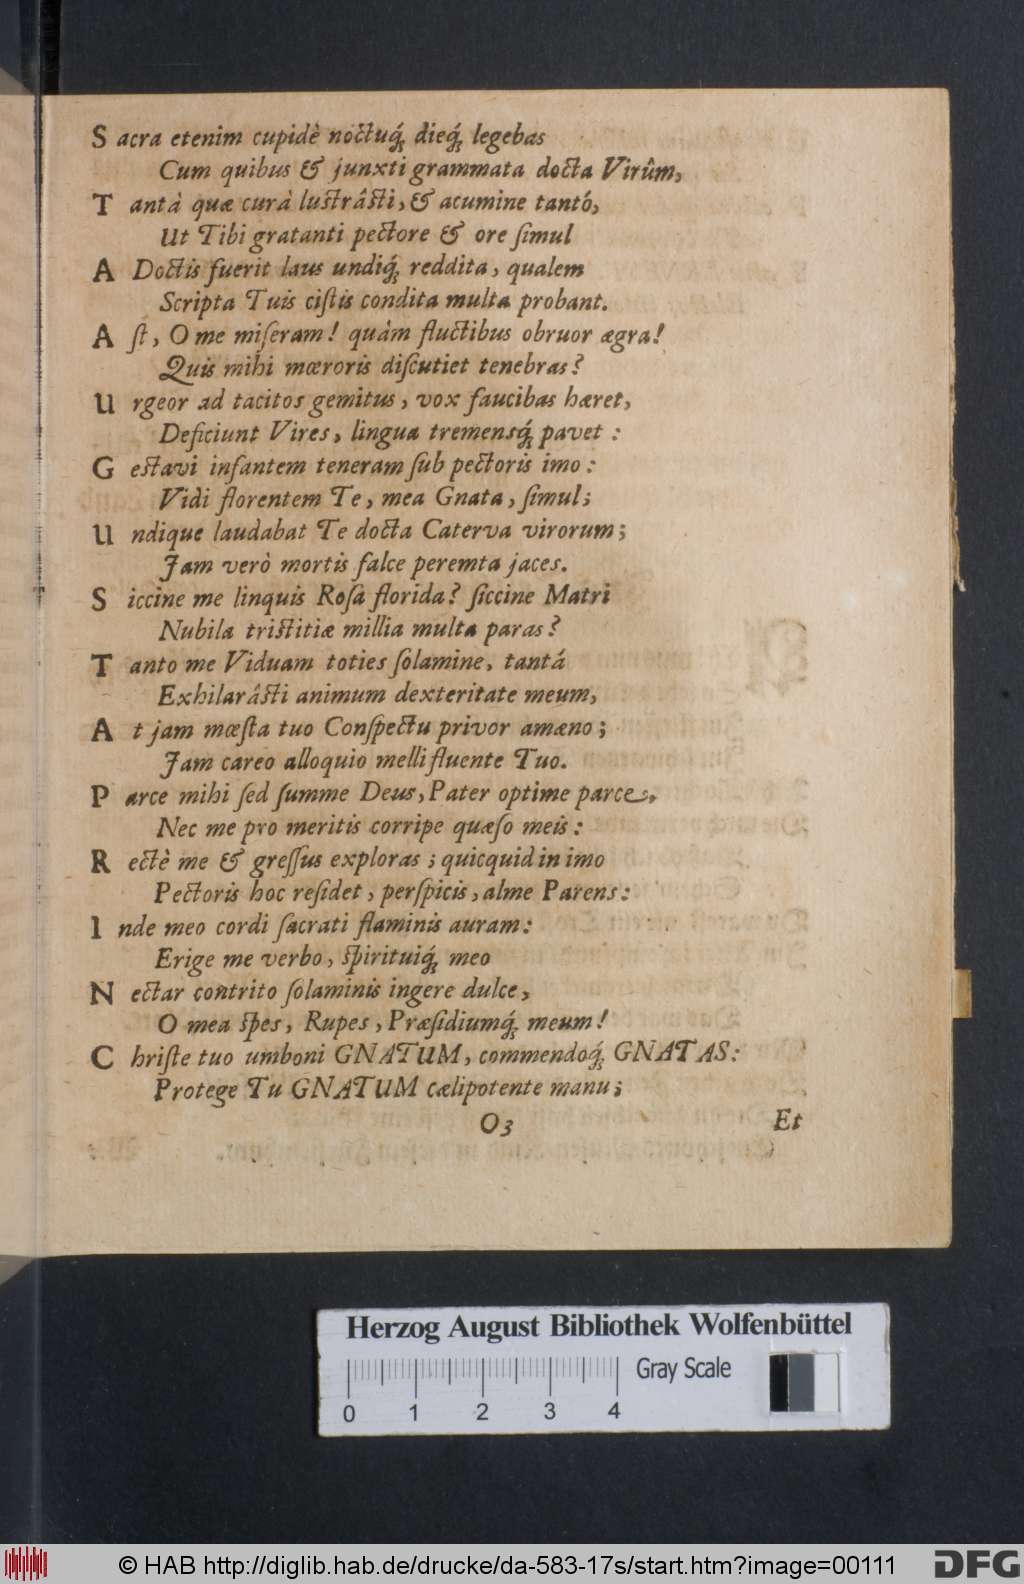 S acra etenim cupidè noctuq́; dieq́; legebas
Cum quibus & junxti grammata docta Virûm,
T antà quæ curà lustrâsti, & acumine tantó,
Ut Tibi gratanti pectore & ore ſimul
A Doctis fuerit laus undiq́; reddita, qualem
Scripta Tuis ciſtis condita multa probant.
A ſt, O me miſeram! quàm fluctibus obruor ægra!
Quis mihi mœroris diſcutiet tenebras?
U rgeor ad tacitos gemitus, vox faucibas hæret,
Deficiunt Vires, lingua tremensq́; pavet :
G estavi infantem teneram ſub pectoris imo :
Vidi florentem Te, mea Gnata, ſimul;
U ndique laudabat Te docta Caterva virorum;
Jam verò mortis falce peremta jaces.
S iccine me linquis Roſa florida? ſiccine Matri
Nubila tristitiæ millia multa paras?
T anto me Viduam toties ſolamine, tantá
Exhilarâsti animum dexteritate meum,
A t jam mœſta tuo Conſpectu privor amæno;
Jam careo alloquio mellifluente Tuo.
P arce mihi ſed ſumme Deus, Pater optime parce,
Nec me pro meritis corripe quæſo meis :
R ectè me & greſſus exploras ; quicquid in imo
Pectoris hoc reſidet, perſpicis, alme Parens :
I nde meo cordi ſacrati flaminis auram :
Erige me verbo, ſpirituiq́; meo
N ectar contrito ſolaminis ingere dulce,
O mea ſpes, Rupes, Præſidiumq́; meum!
C hriſte tuo umboni GNATUM, commendoq́; GNATAS:
Protege Tu GNATUM cælipotente manu;
O3 Et
Herzog August Bibliothek Wolfenbüttel
Gray Scale
0 1 2 3 4
© HAB http://diglib.hab.de/drucke/da-583-17s/start.htm?image=00111
DFG